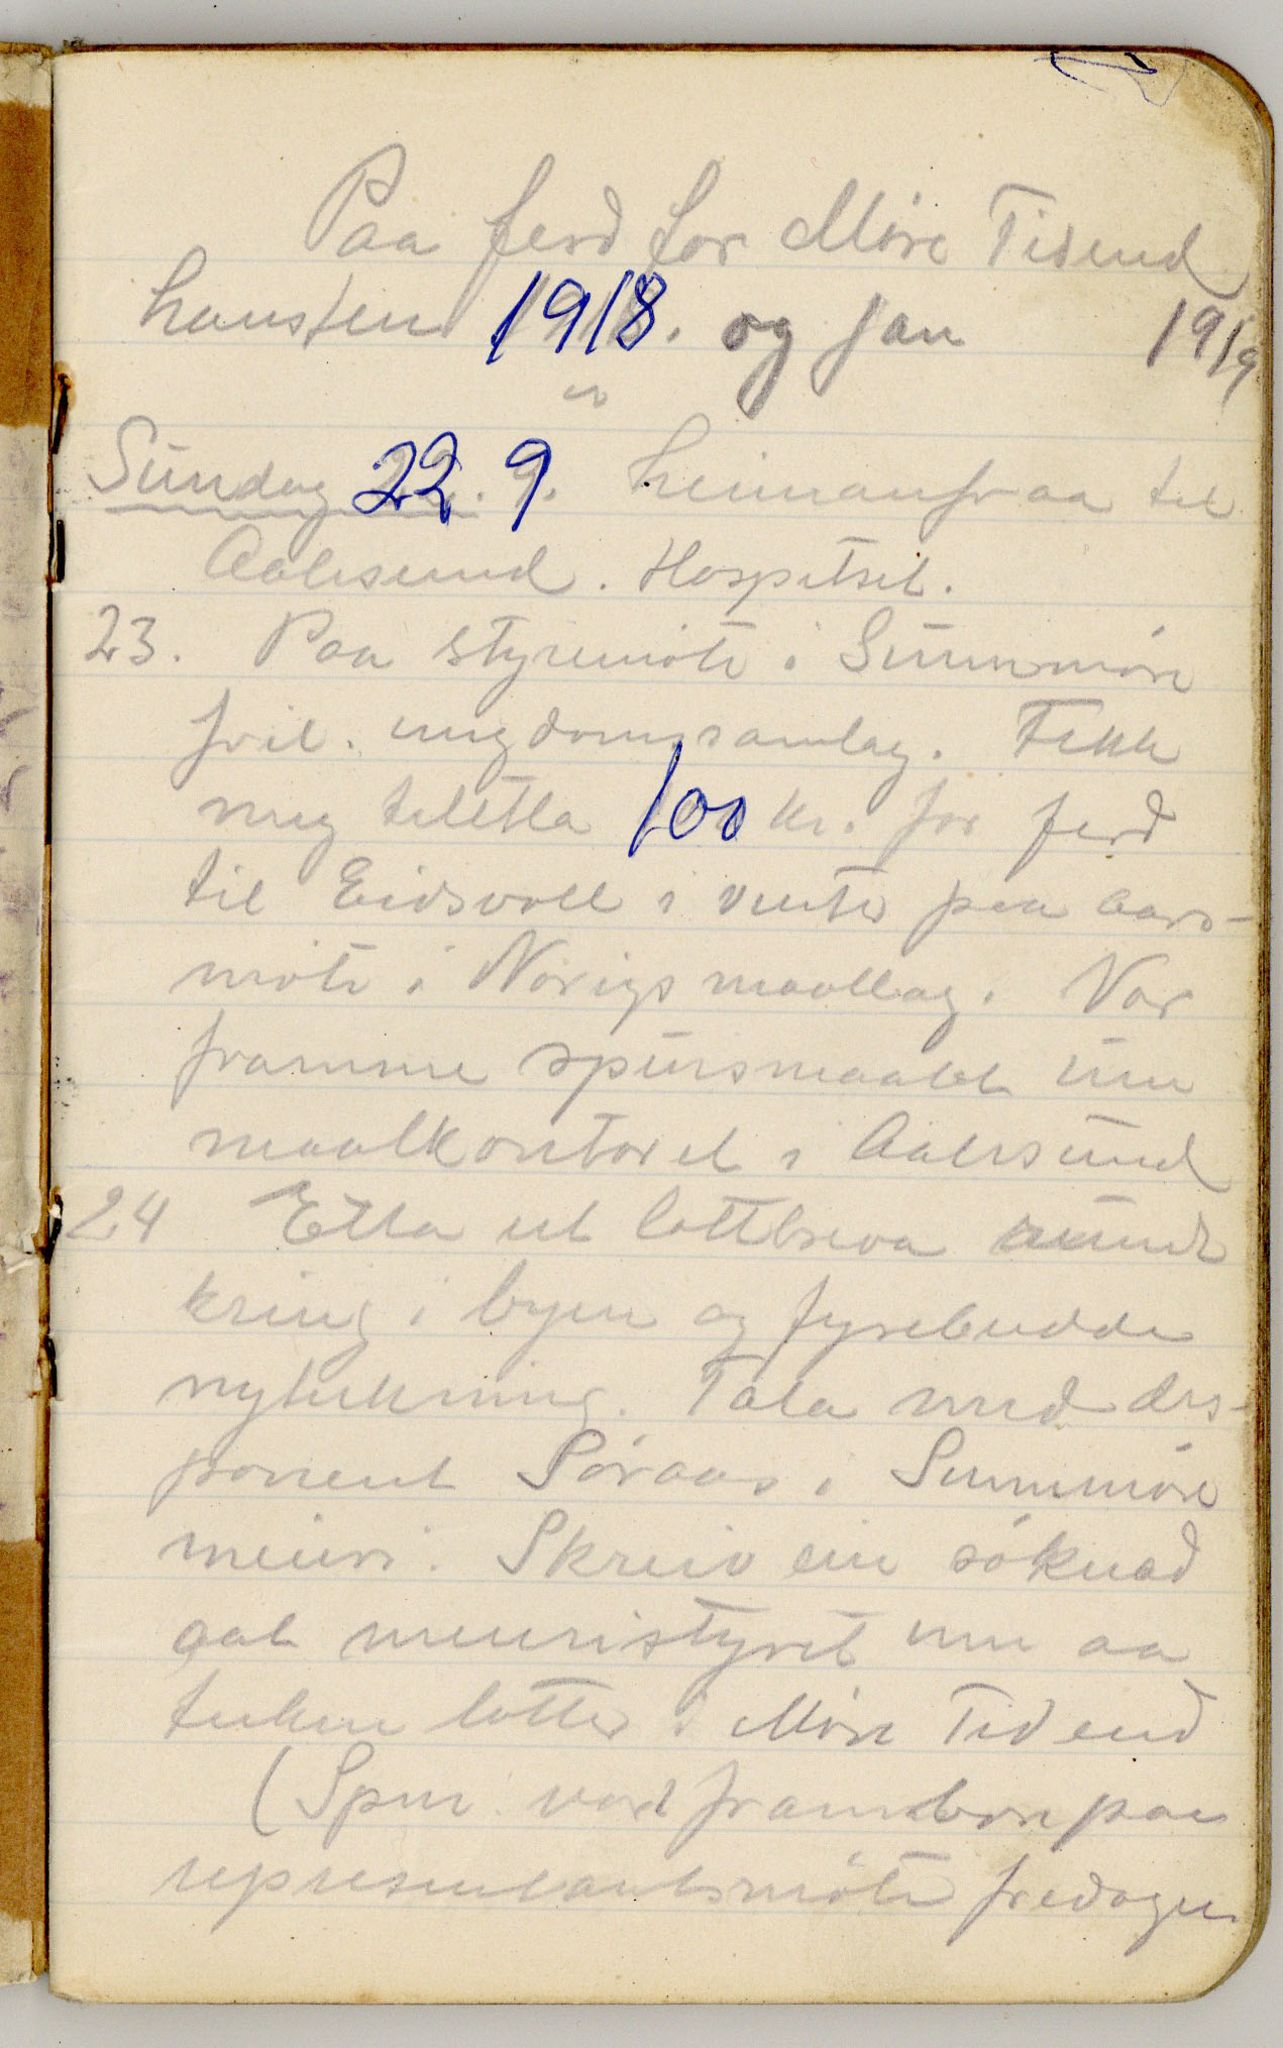 Paa ferd for Møre Tidend
hausten 1918. og jan 1919
Sundag 22. 9. heimanfraa til
Aalesund. Hospitset.
23. Paa styremøte i Sunnmøre
fril. ungdomssamlag. Fekk
meg tiletla 100 kr. for ferd
til Eidsvoll i vinter paa aars-
møte i Norigs maallag. Var
framme spursmaalet um
maalkontoret i Aalesund
24 Etla ut lottbreva rundt
kring i byen og fyrebudde
nytekning. Tala med dis-
ponent Søraas i Sunnmøre
meieri. Skreiv ein søknad
aat meieristyret um aa
teikne lotter i Møre Tidend
(Spm. vart frambore paa
representantsmøte fredagen